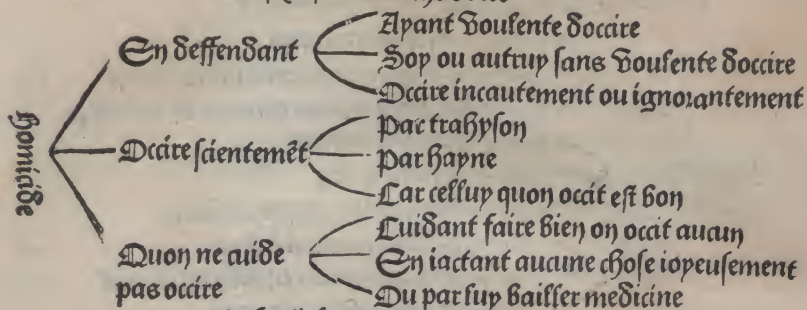 homicide
En deffendant
Ayant voulente doccire
Soy ou autruy sans voulente doccire
Occire incautement ou ignorantement
Occire scientemẽt
Par trahyson
Par hayne
Car celluy quon occit est bon
Quon ne cuide
pas occire
Cuidant faire bien on occit aucun
En iactant aucune chose ioyeusement
Ou par luy bailler medicine